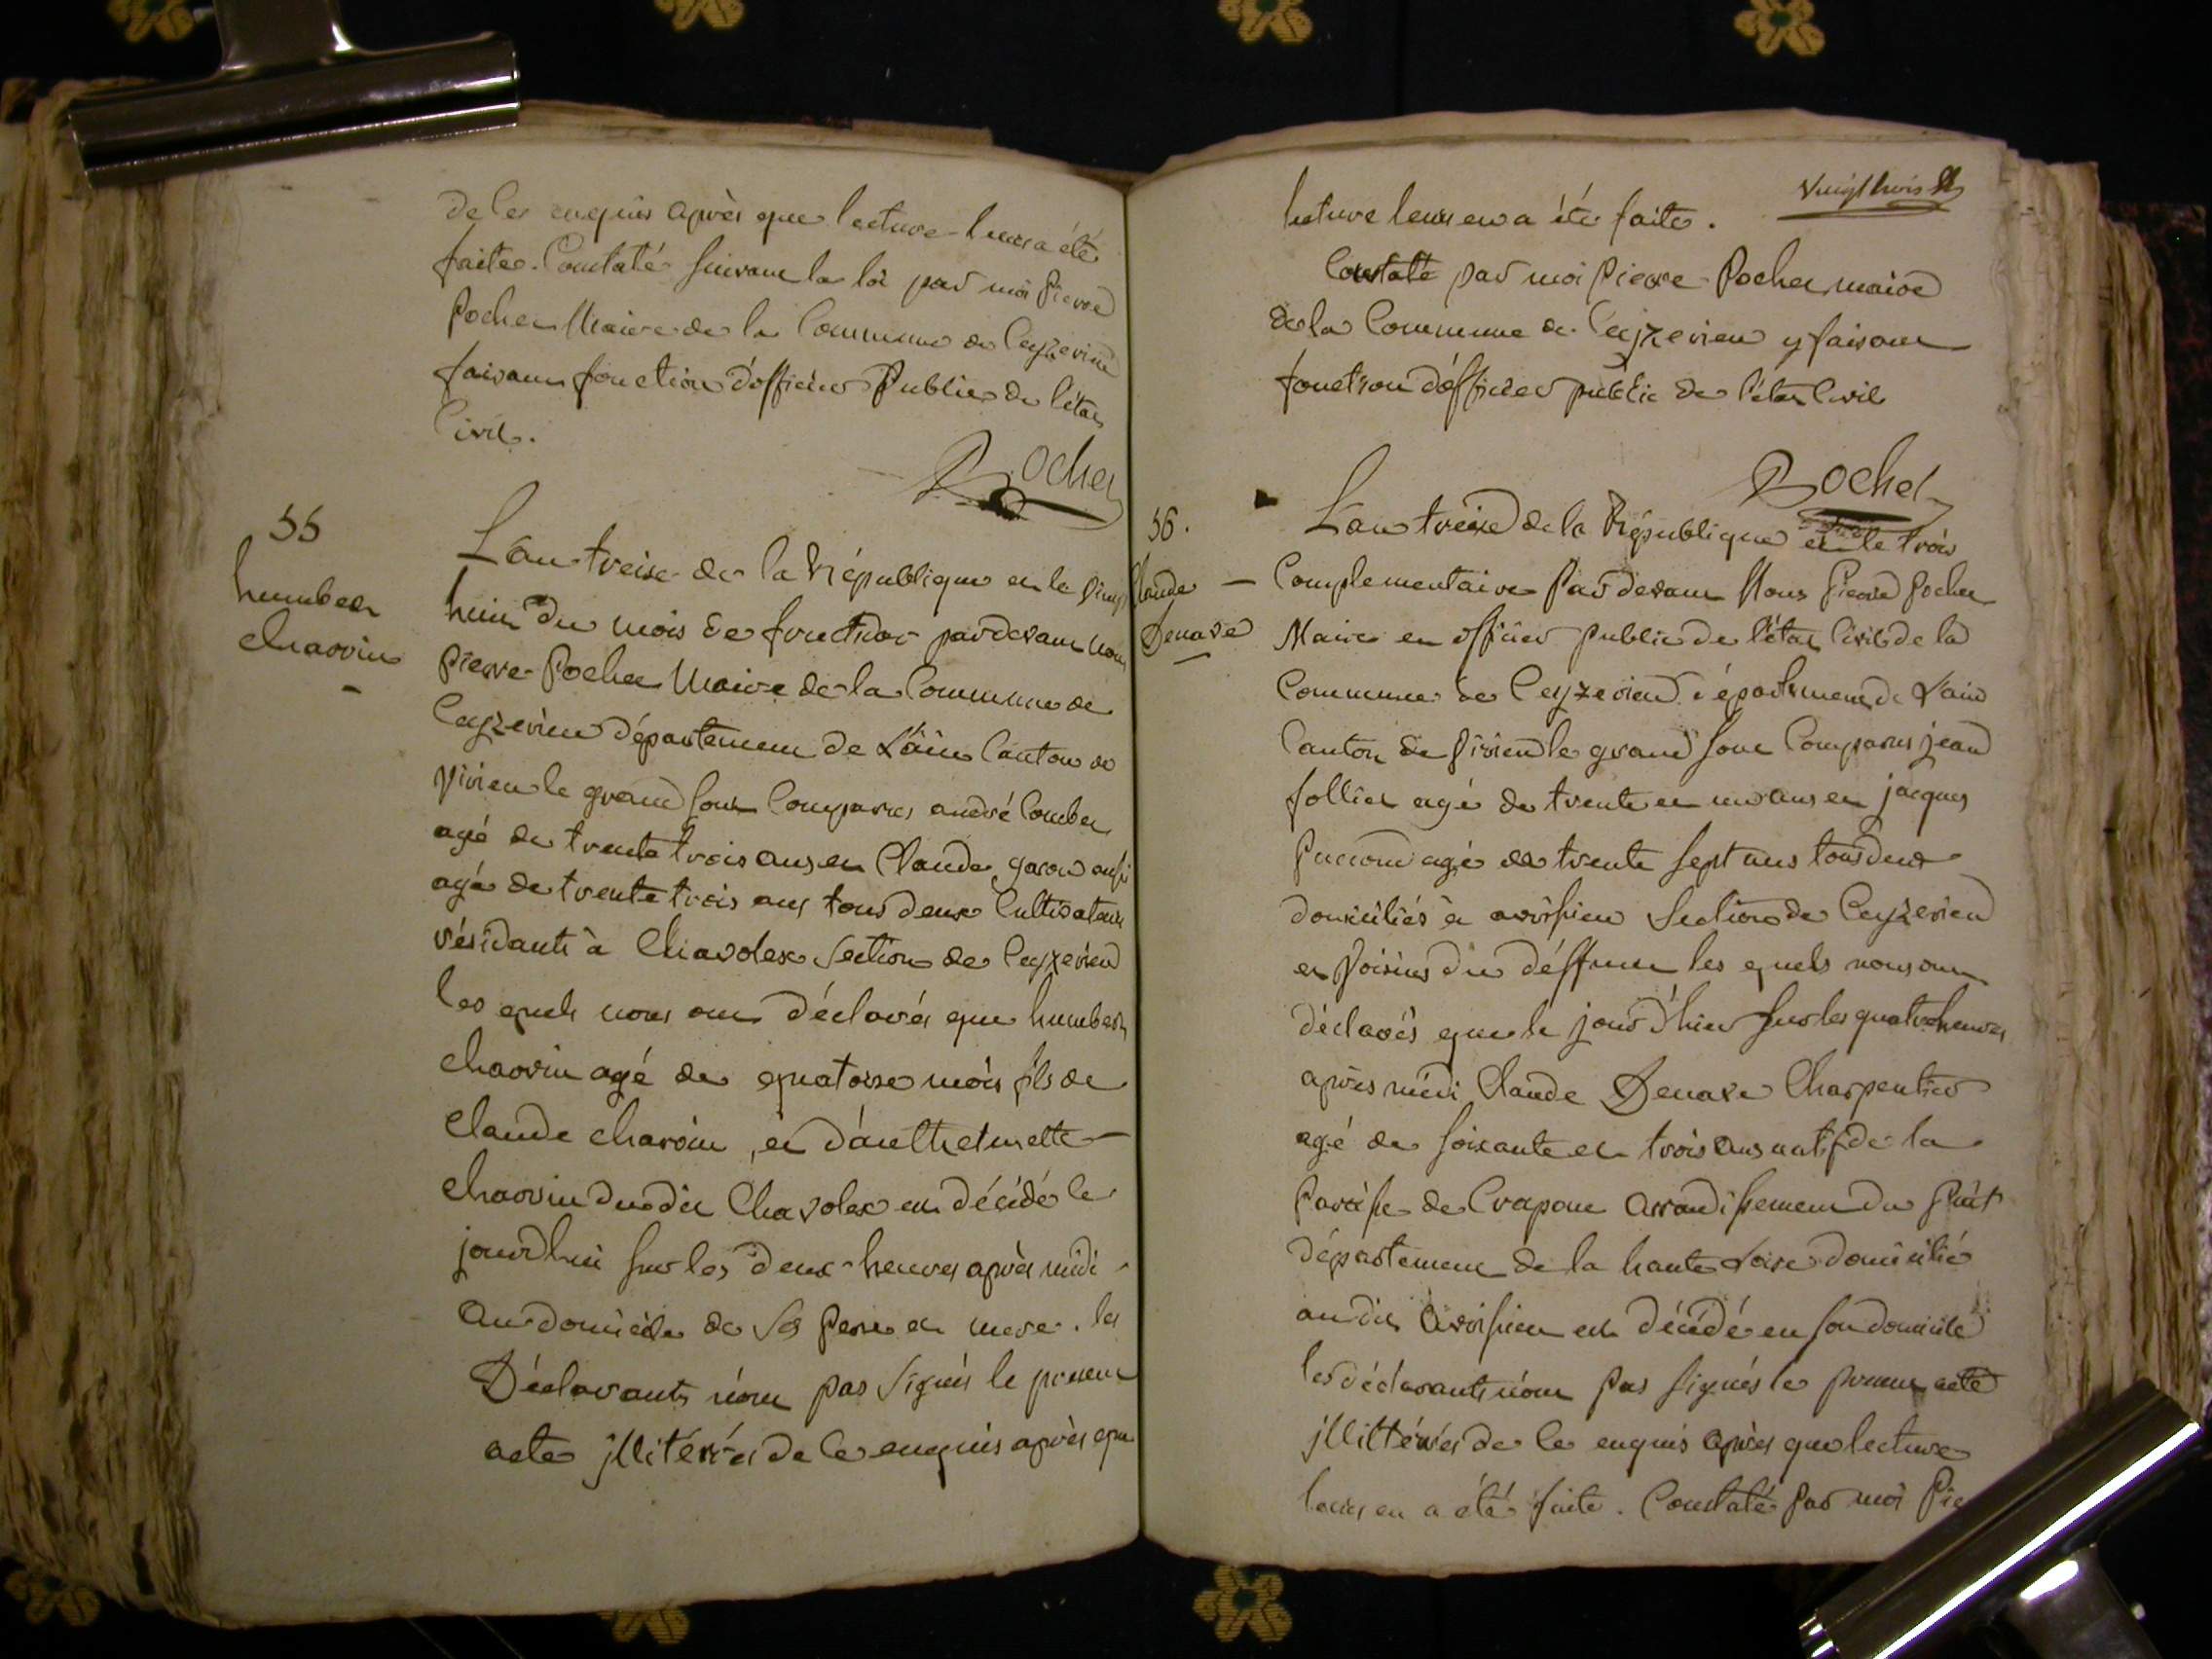 de les enquis après que lecture leurs a été
faite. Constaté suivant la loi par moi Pierre
Pochet Maire de la Commune de Ceyzerieu
faisant fonction d'officier Public de l'état
Civil.
Pochet
55
humbert
charvin
L'an treise de la République et le vingt
huit du mois de fructidor pardevant nous
Pierre Pochet Maire de la Commune de
Ceyzerieu département de L'ain Canton de
Virieu le grand sont Comparus andré Combet
agé de trente trois ans et Claude garon aussi
agé de trente trois ans tous deux Cultivateurs
résidants à Chavolex Section de Ceyzerieu
les quels nous ont déclarés que humbert
charvin agé de quatorse mois fils de
Claude charvin, et d'anthelmette
charvin dudit Chavolex est décédé le
jourd'hui sur les deux heures après midi
au domicile de ses Pere et mere. les
Déclarants n'ont pas signés le present
acte jllitérés de ce enquis après que
vingt trois
lecture leurs en a été faite.
Constaté par moi Pierre Pochet maire
de la Commune de Ceyzerieu y faisant
fonction d'officier public de l'état Civil
Pochet
56.
Claude
Denave
L'an treise de la République et le trois
Complementaire Pardevant Nous Pierre Pochet
Maire et officier public de l'état Civil de la
Commune de Ceyzerieu département de L'ain
Canton de Virieu le grand sont Comparus jean
follict agé de trente et un ans et jacques
agé de trente sept ans tous deux
domiciliés à avrissieu Section de Ceyzerieu
et Voisins du déffunt les quels nous ont
déclarés que le jour d'hier sur les quatre heures
après midi Claude Denave Charpentier
agé de soixante et trois ans natif de la
Paroisse de Crapone arrondissement du Puit
département de la haute Loire domicilié
audit avrissieu est décédé en son domicile
les déclarants n'ont pas signés le present acte
jllittérés de ce enquis après que lecture
leurs en a été faite. Constaté par moi Pie